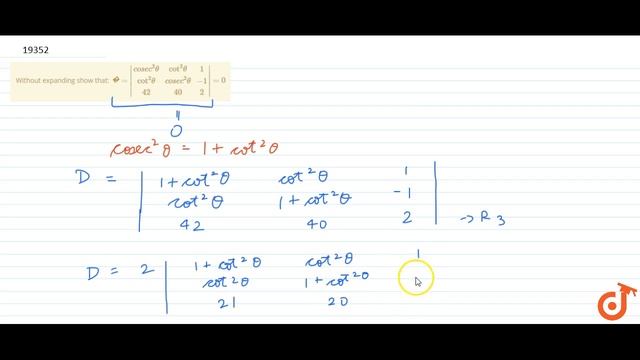 19352
Without expanding show that: � = | cosec²θ cot²θ 1 |
| cot²θ cosec²θ −1 | = 0
| 42 40 2 |
11
0
cosec²θ = 1 + cot²θ
D = | 1 + cot²θ cot²θ 1 |
| cot²θ 1 + cot²θ -1 |
| 42 40 2 | → R3
D = 2 | 1 + cot²θ cot²θ 1
cot²θ 1 + cot²θ
21 20
doubtnut